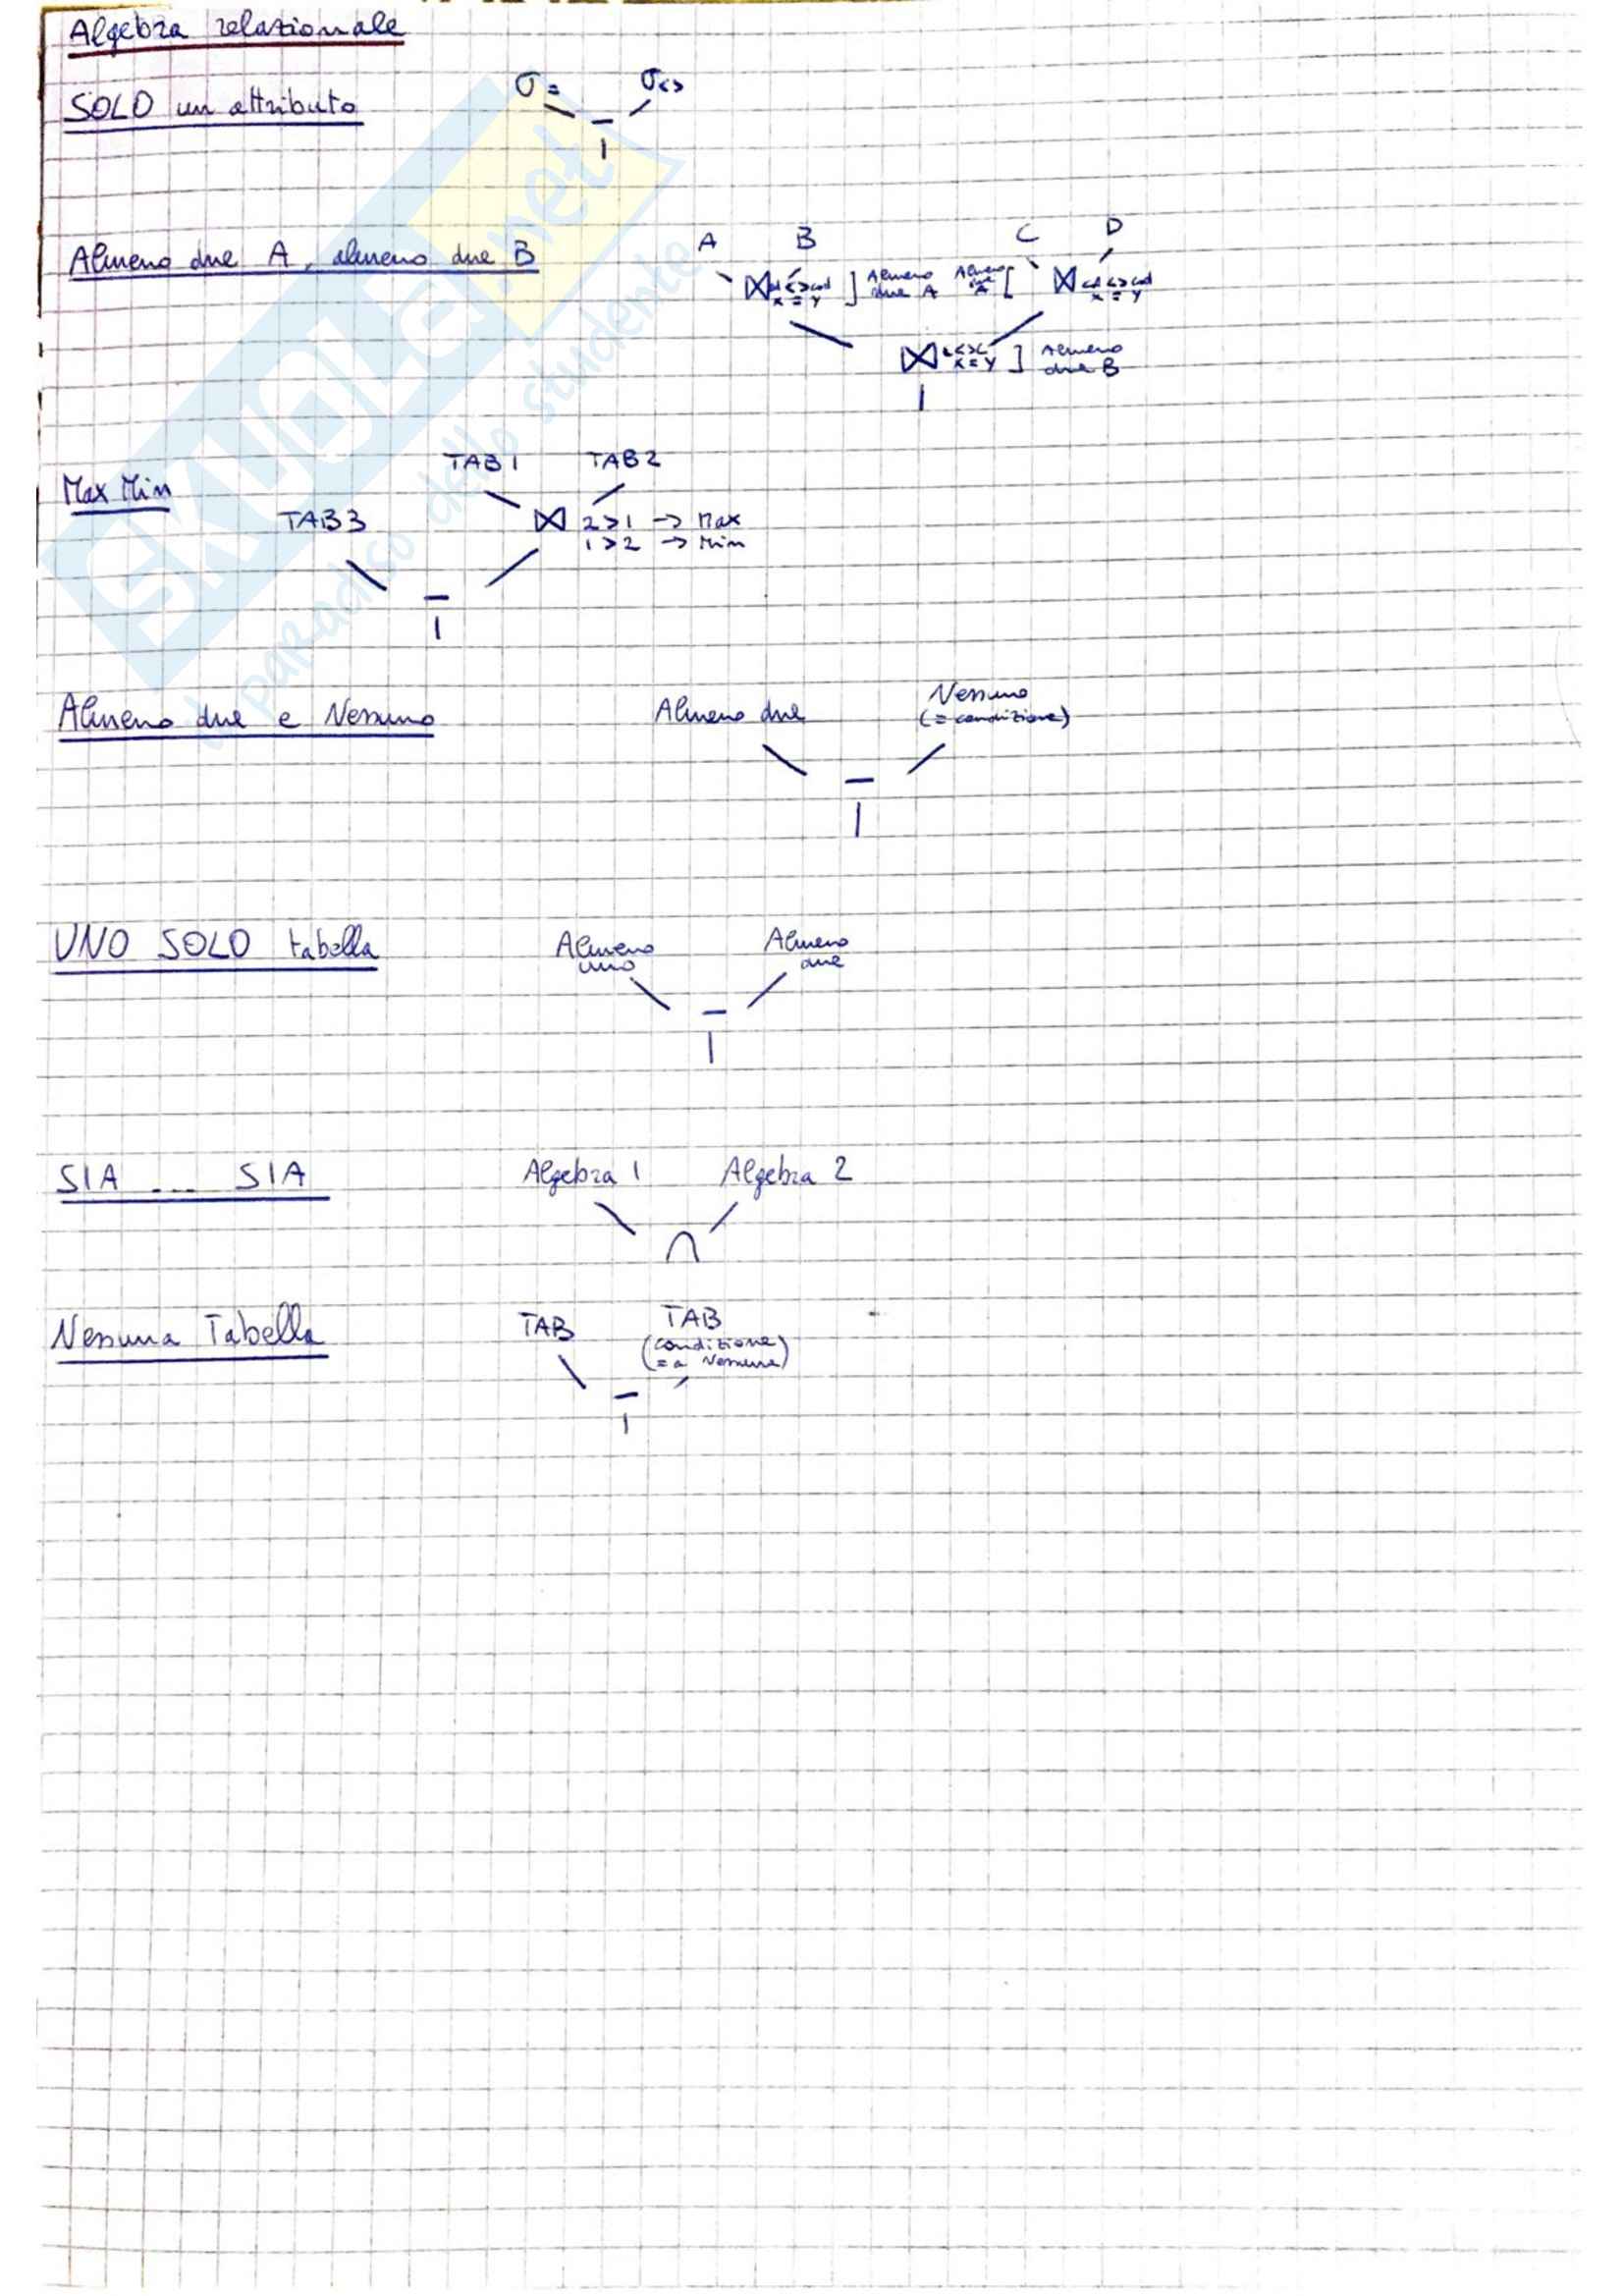 Algebra relazionale
SOLO un attributo
σ = σ<>
—
Almeno due A, almeno due B
A B C D
⋈ cod <> cod x = y ] Almeno due A
Almeno due A [ ⋈ cod <> cod x = y
⋈ x = y ] Almeno due B
Max Min
TAB 1 TAB 2
TAB 3
⋈ 2>1 -> Max
1>2 -> Min
—
Almeno due e Nessuno
Almeno due
Nessuno
(= condizione)
—
UNO SOLO tabella
Almeno uno
Almeno due
—
SIA ... SIA
Algebra 1 Algebra 2
∩
Nessuna Tabella
TAB
TAB
(condizione
= a Nessuna)
—
SKUOLA.net
il paradiso dello studente